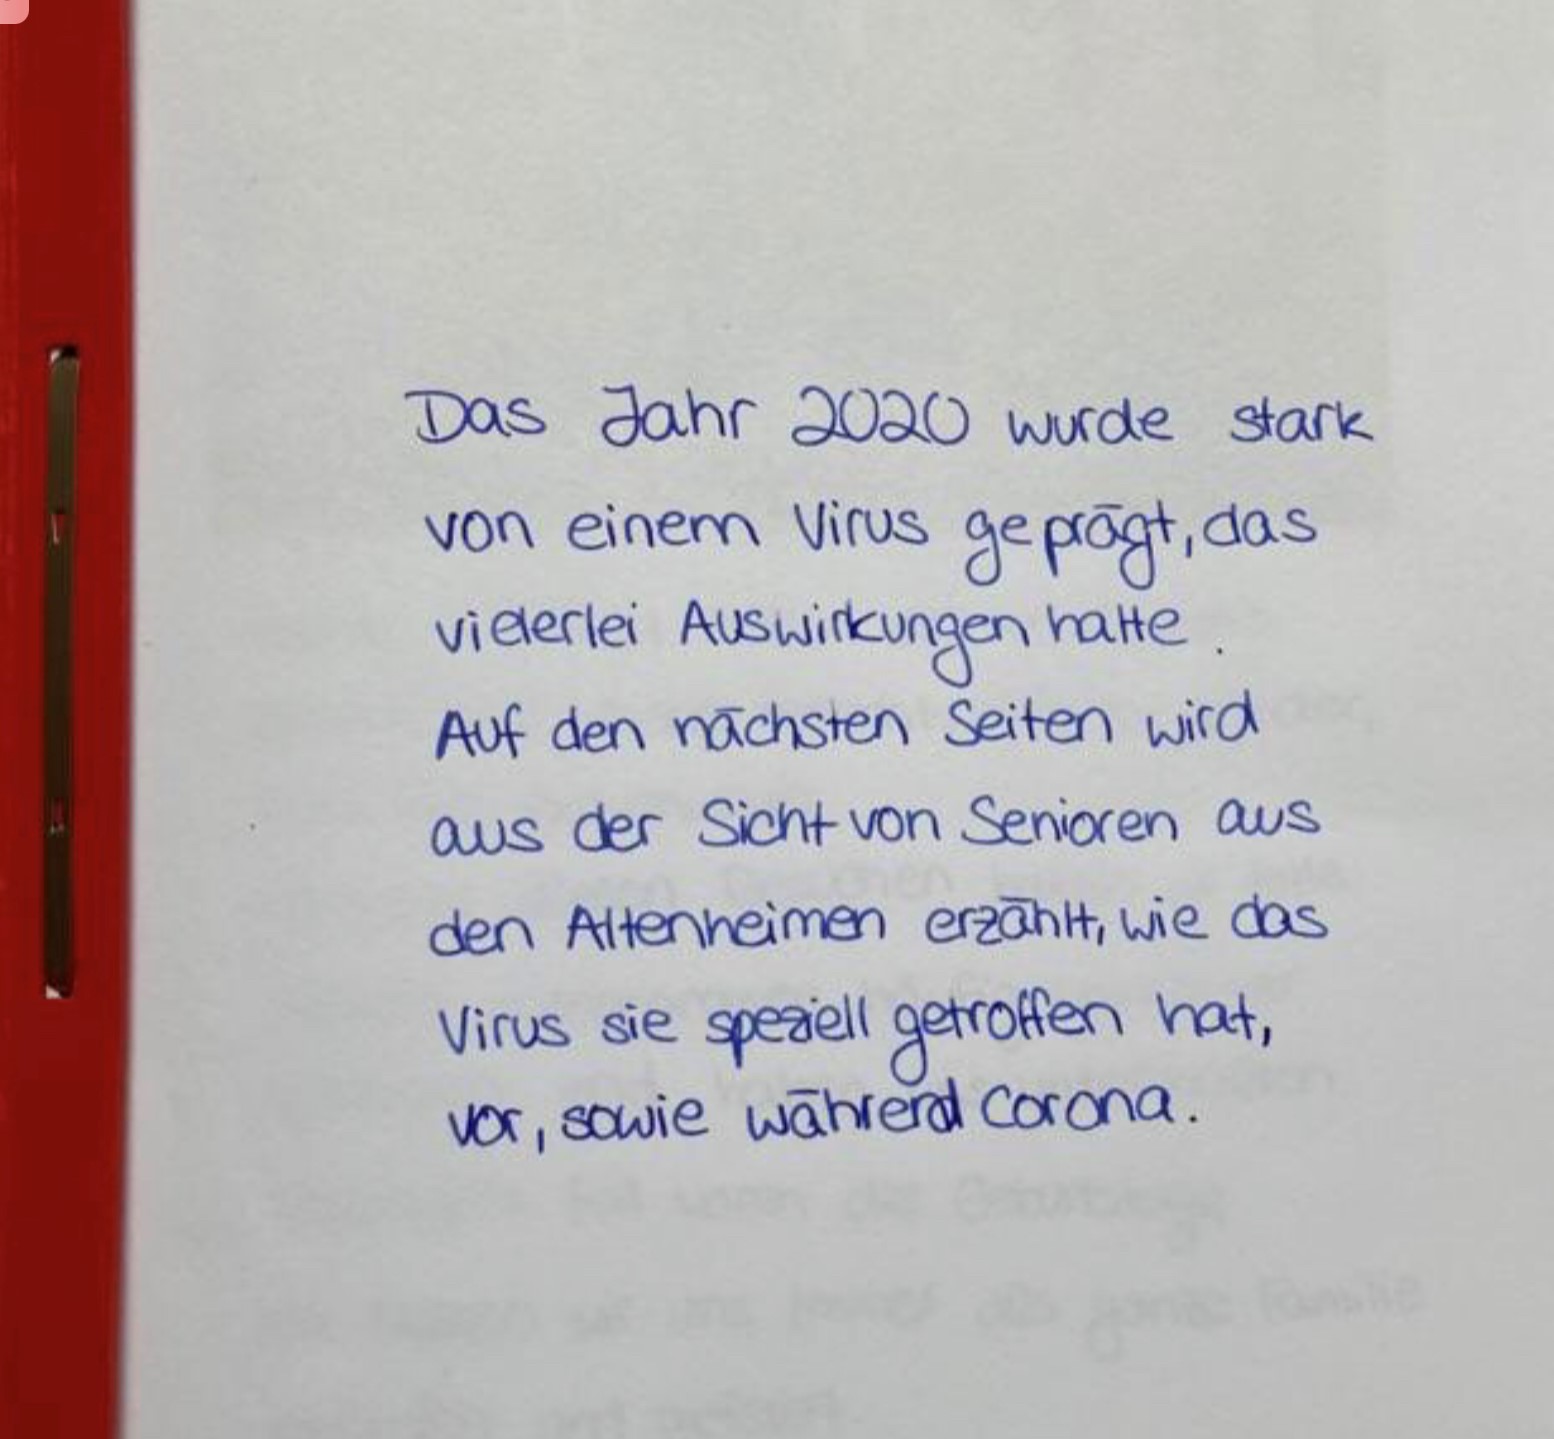 Das Jahr 2020 wurde stark
von einem Virus geprägt, das
vielerlei Auswirkungen hatte.
Auf den nächsten Seiten wird
aus der Sicht von Senioren aus
den Altenheimen erzählt, wie das
Virus sie speziell getroffen hat,
vor, sowie während Corona.